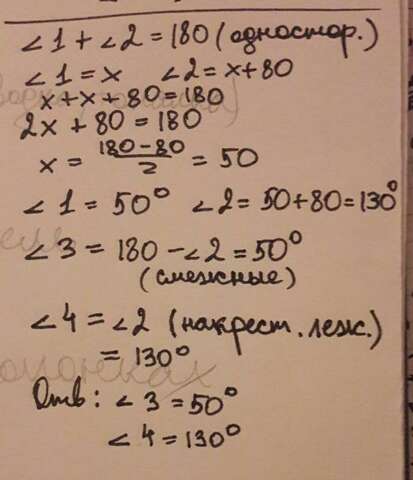 ∠1 + ∠2 = 180 (одностор.)
∠1 = x ∠2 = x+80
x + x + 80 = 180
2x + 80 = 180
x = (180-80)/2 = 50
∠1 = 50° ∠2 = 50+80=130°
∠3 = 180 - ∠2 = 50°
(смежные)
∠4 = ∠2 (накрест. леж.)
= 130°
Отв: ∠3 = 50°
∠4 = 130°